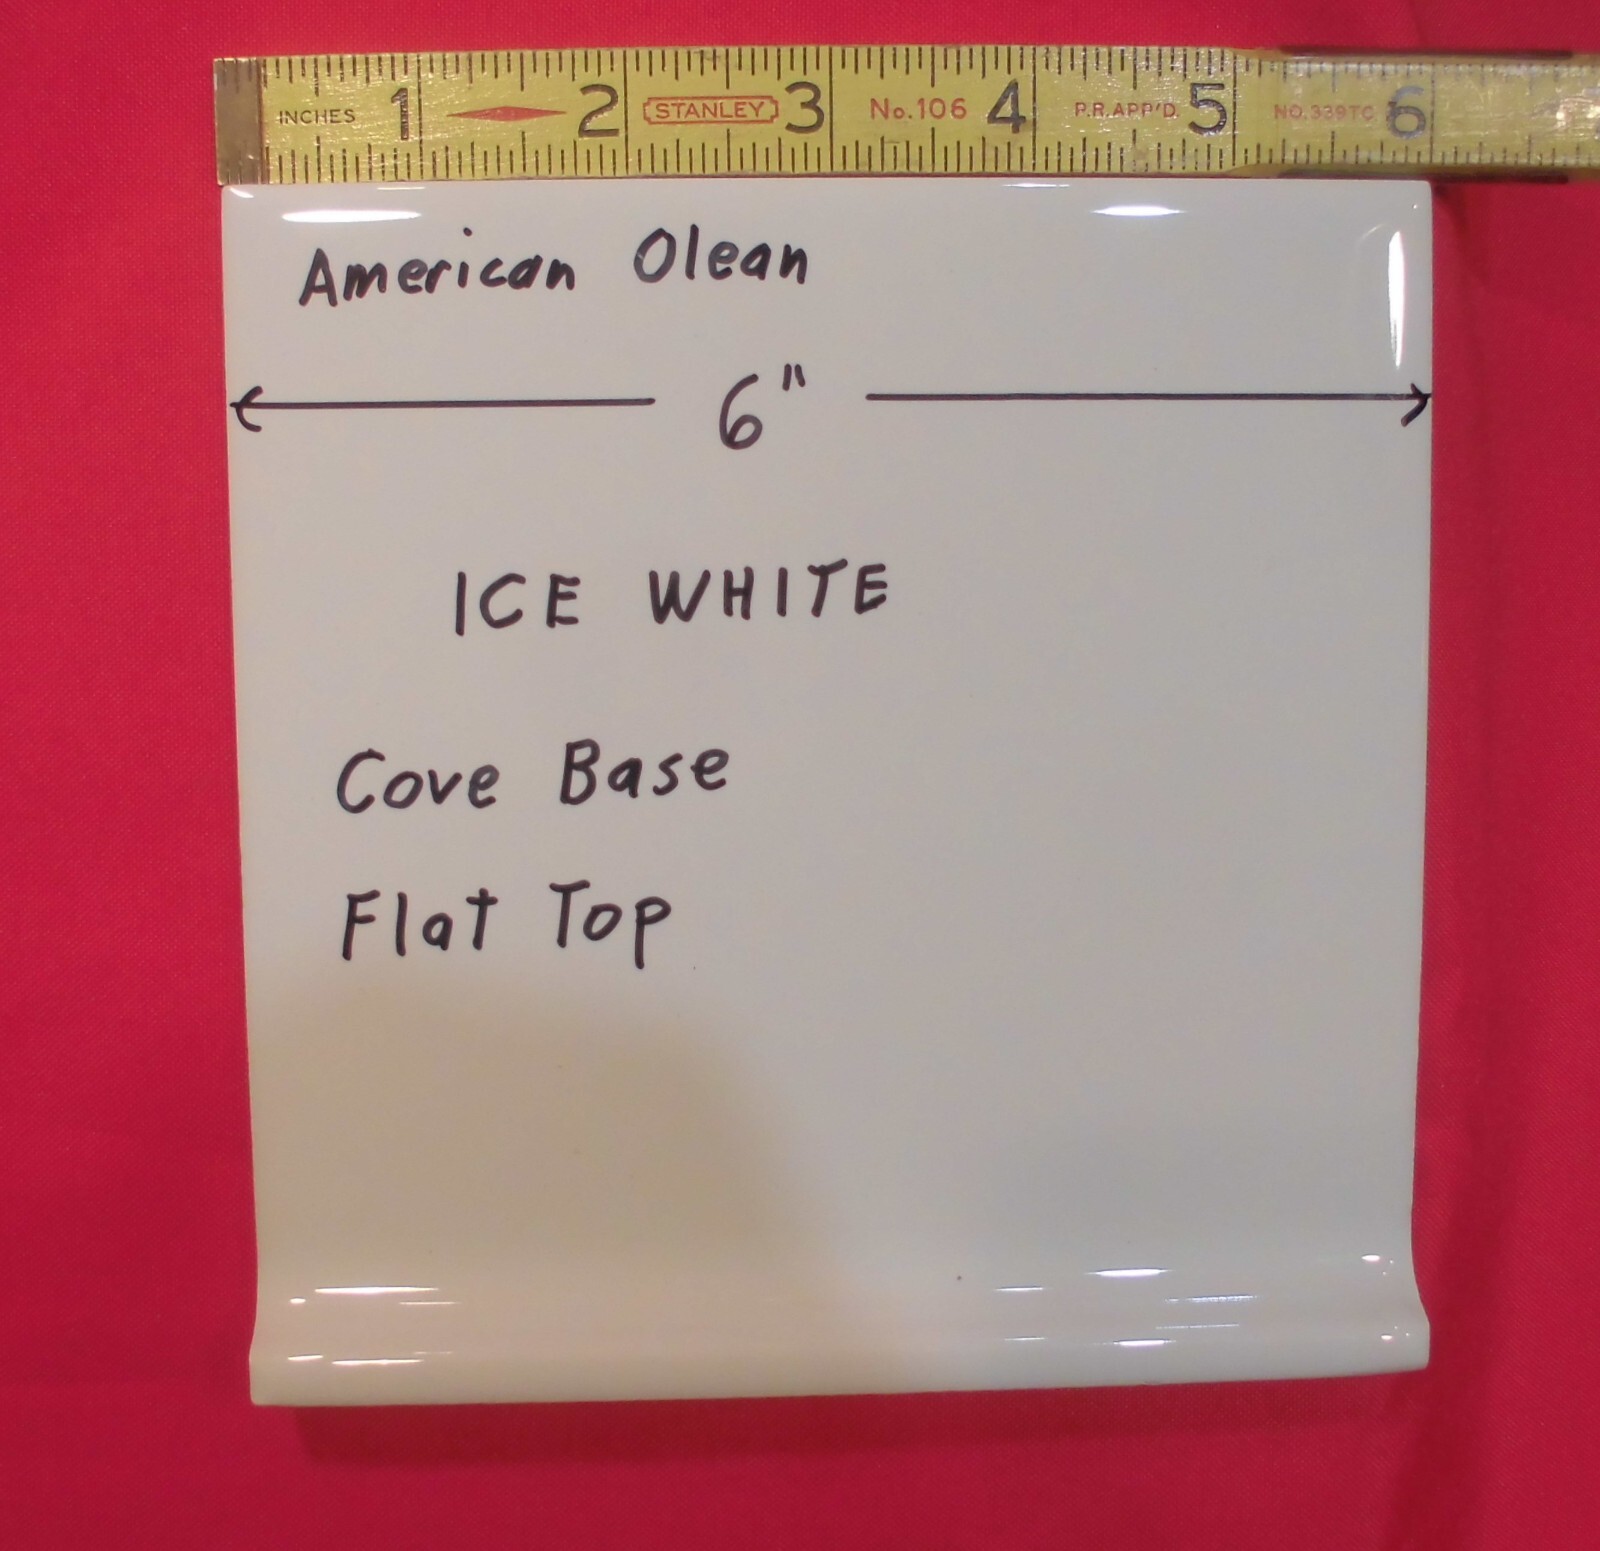 INCHES 1 2 STANLEY 3 No.106 4 P.R.APP'D. 5 NO.339TC 6
American Olean
6"
ICE WHITE
Cove Base
Flat Top